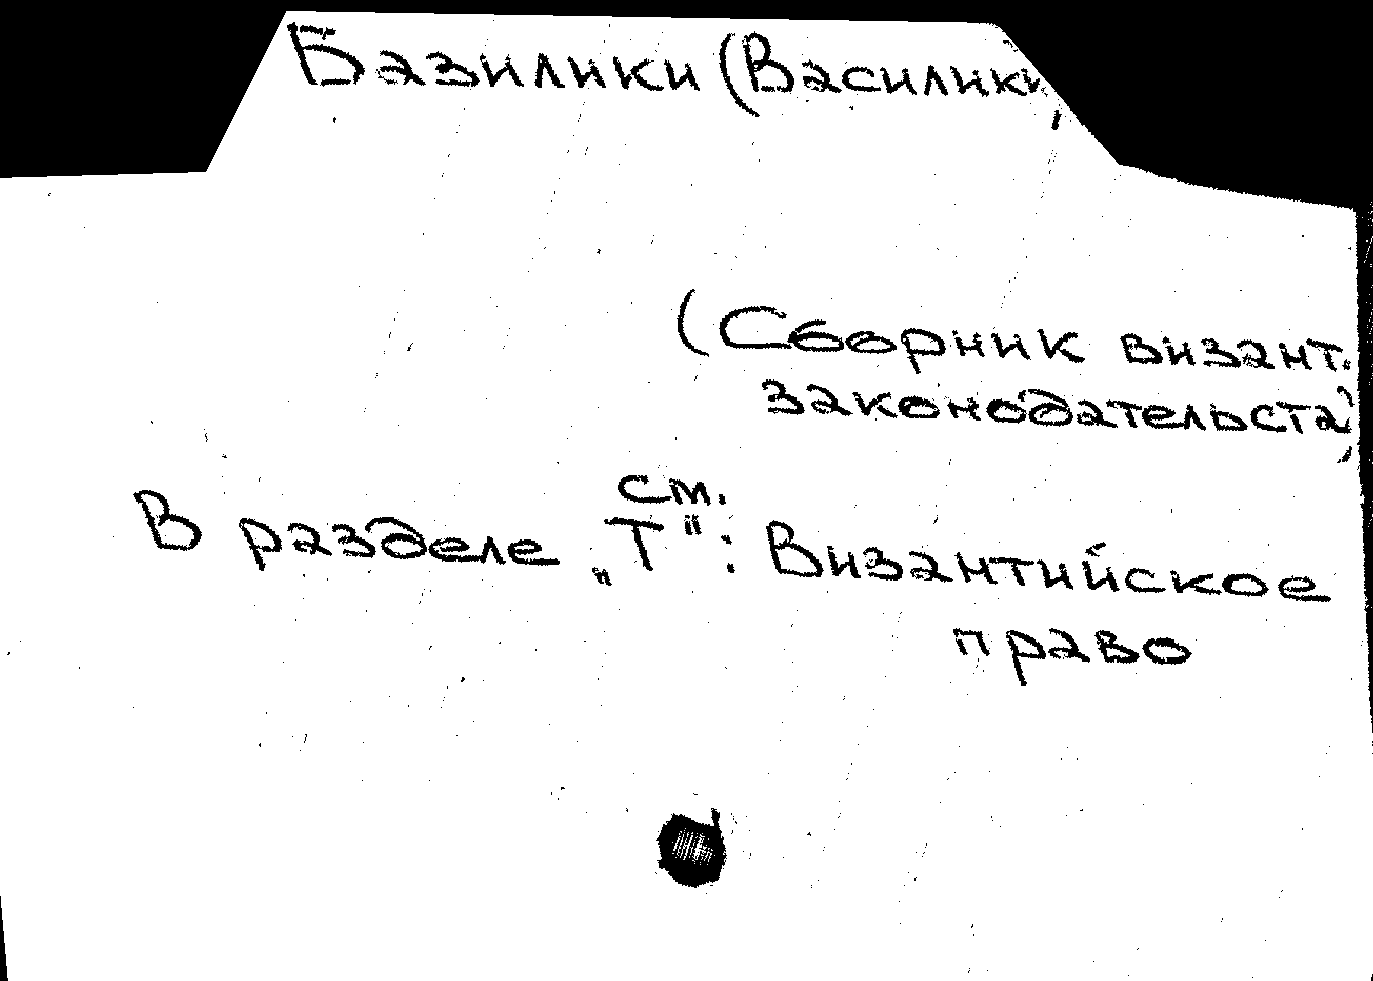 Базилики (Василики)
(Сборник визант.
законодательста)
см.
В разделе „Т“: Византийское
право